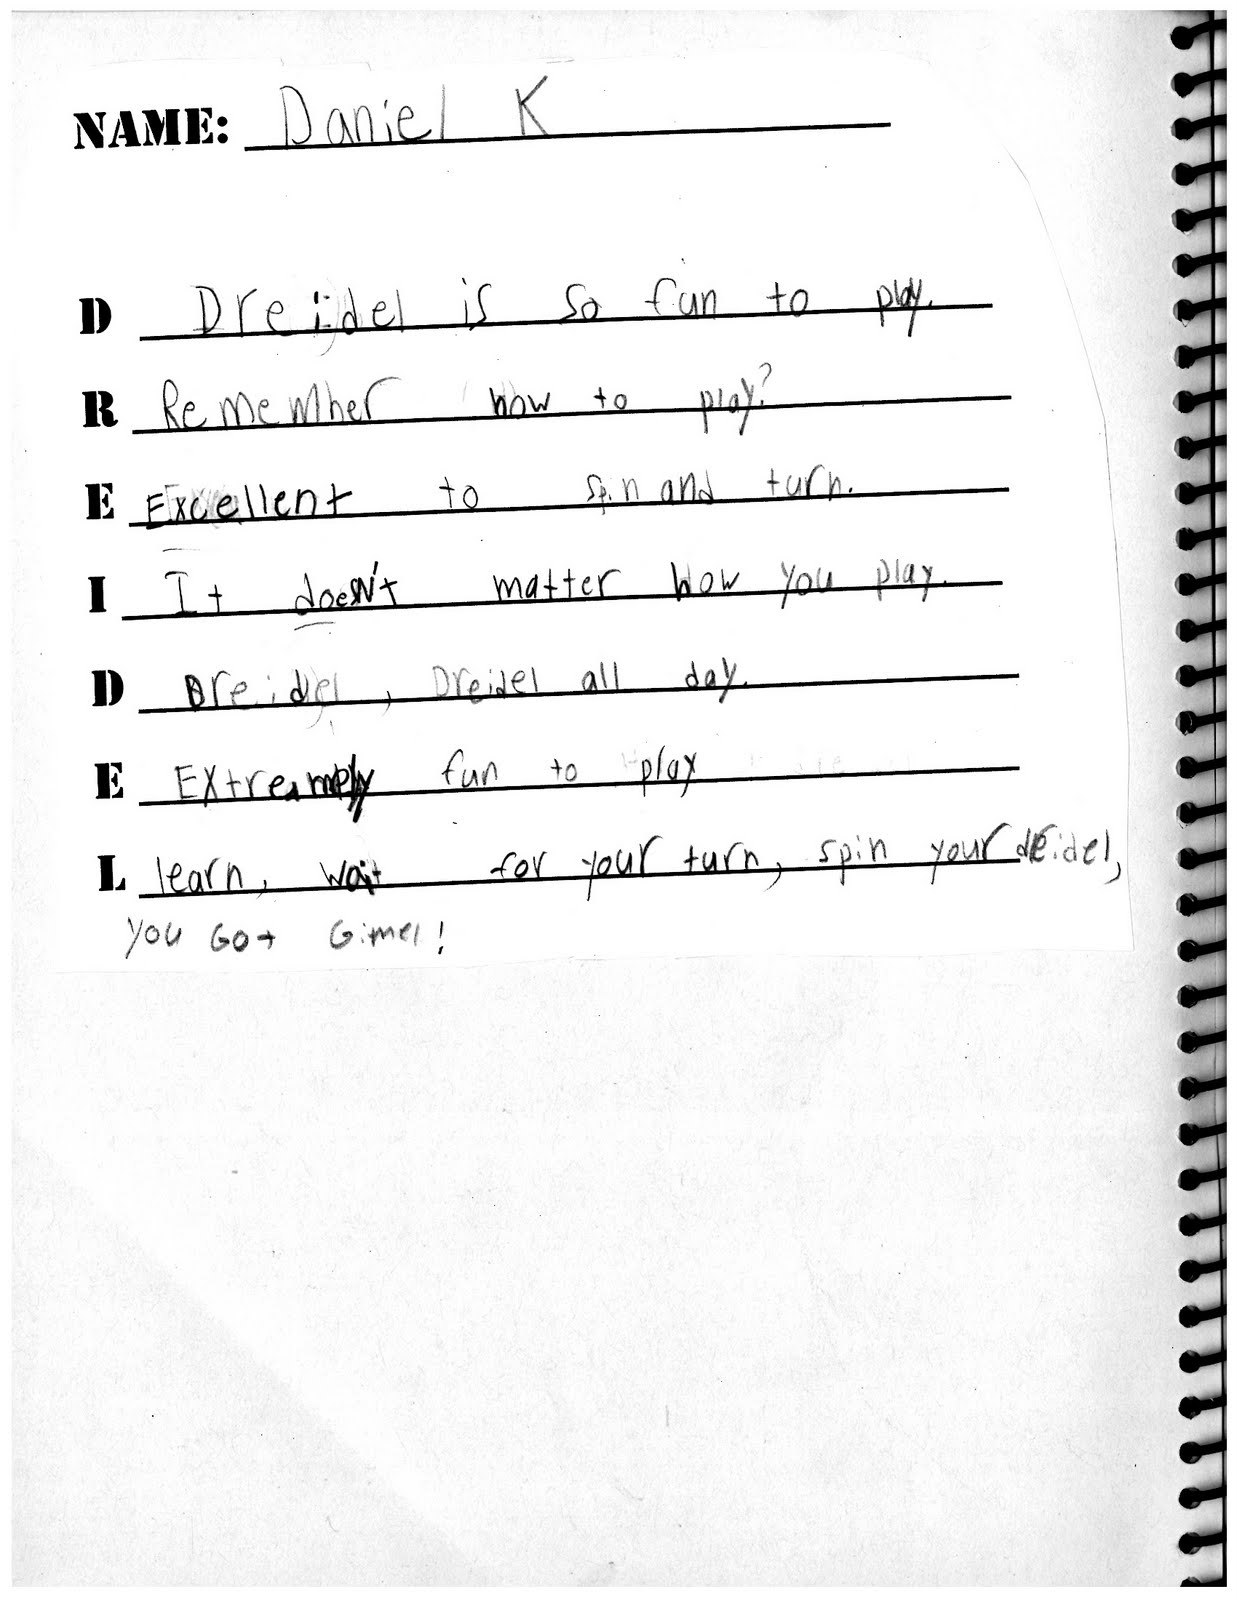 NAME: Daniel K
D Dreidel is so fun to play.
R Remember how to play?
E Excellent to spin and turn.
I It doesn't matter how you play.
D Dreidel, Dreidel all day.
E Extreamely fun to play
L learn, wait for your turn, spin your dreidel,
you Got Gimel!